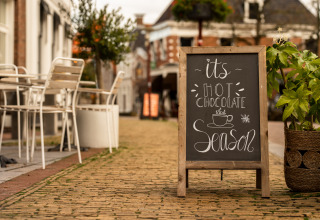 it's
HOT
CHOCOLATE
Season